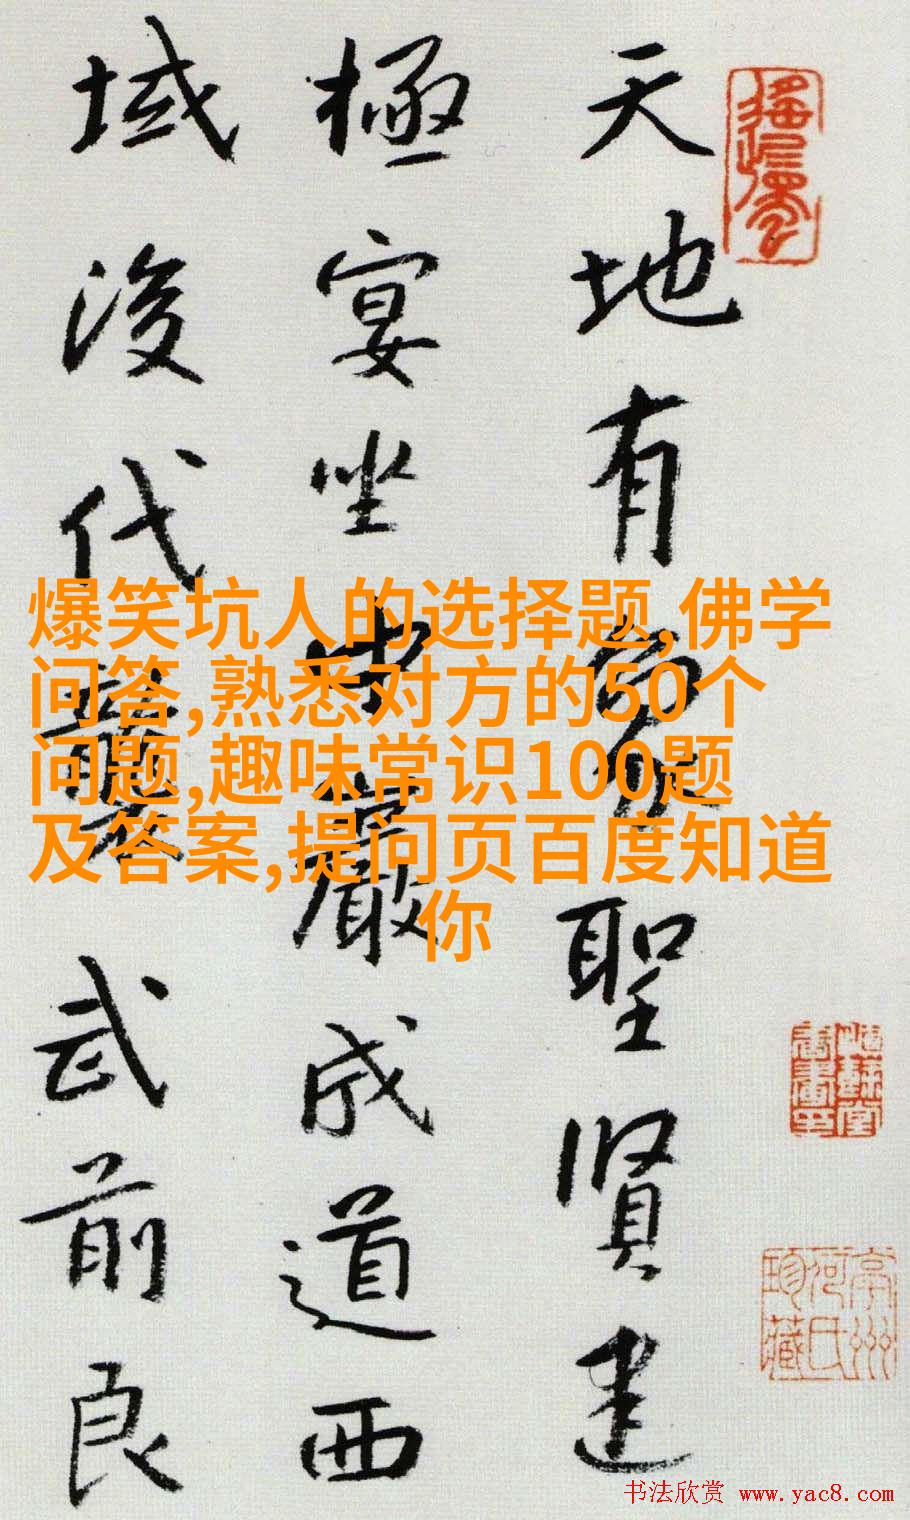 天地有聖賢建
極宴坐中巖成道西
域後代襲武前良
爆笑坑人的选择题,佛学
问答,熟悉对方的50个
问题,趣味常识100题
及答案,提问页百度知道
你
书法欣赏 www.yac8.com